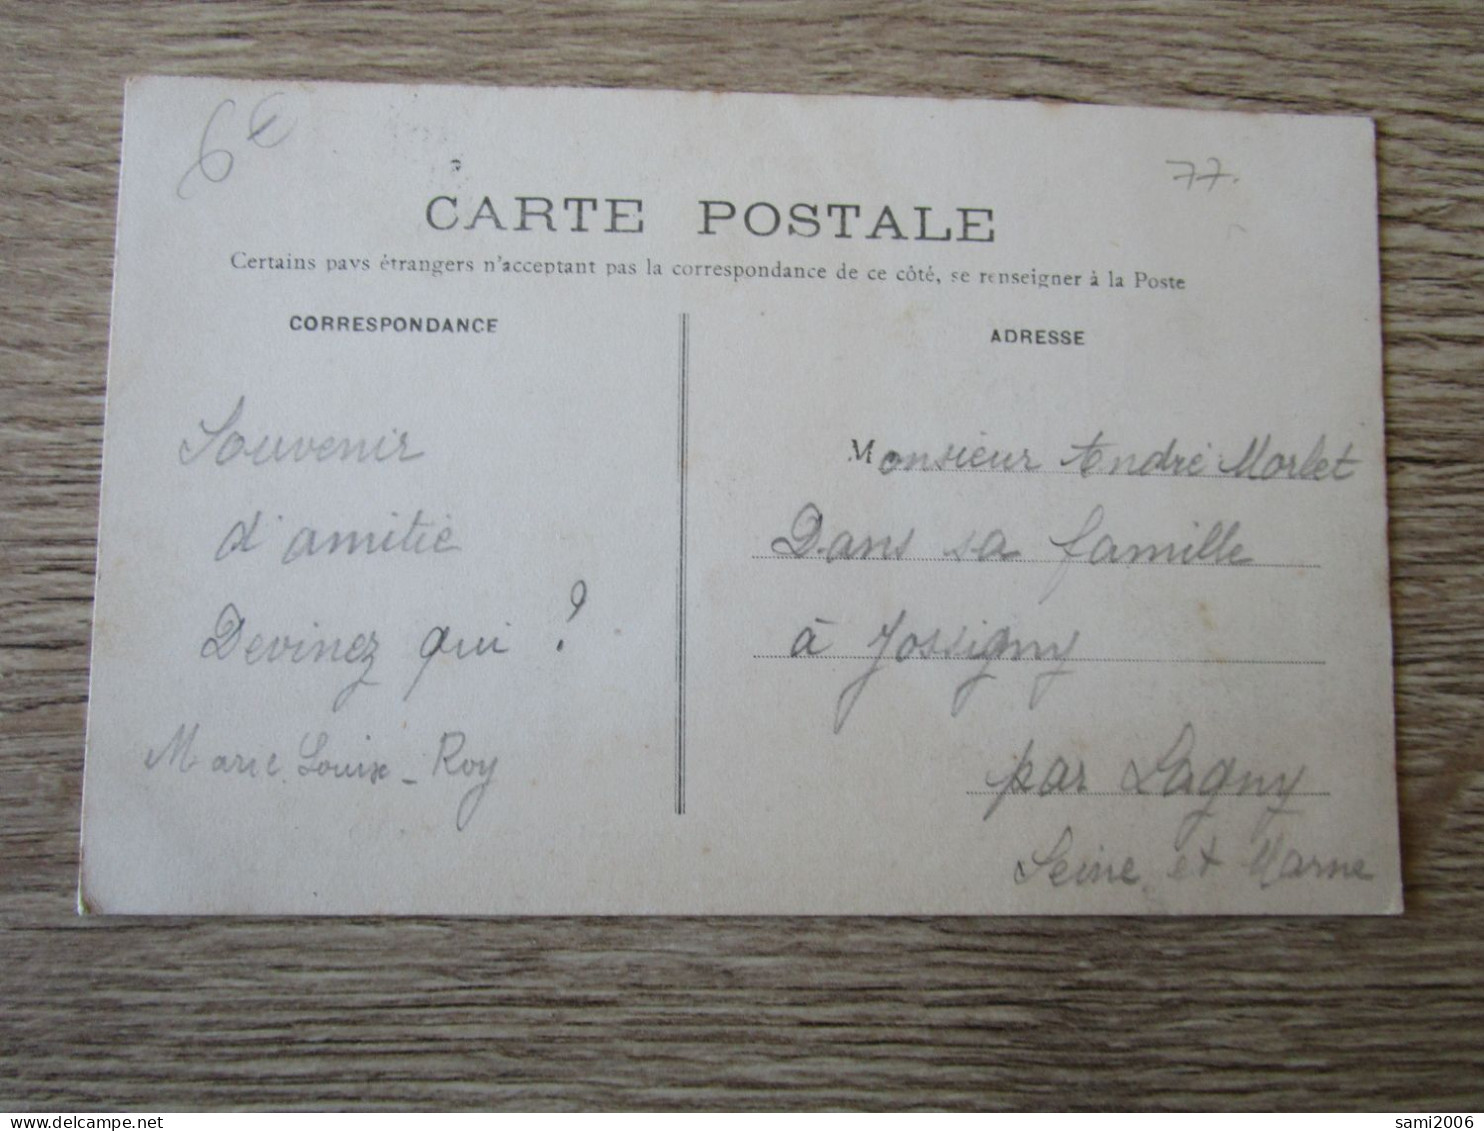 6€
77.
CARTE POSTALE
Certains pays étrangers n'acceptant pas la correspondance de ce côté, se renseigner à la Poste
CORRESPONDANCE
Souvenir
d'amitié
Devinez qui ?
Marie Louise - Roy
ADRESSE
Monsieur André Morlet
Dans sa famille
à Jossigny
par Lagny
Seine et Marne
sami2006